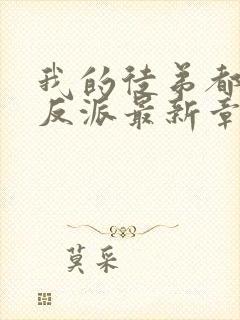 我的徒弟都
反派最新章
莫采